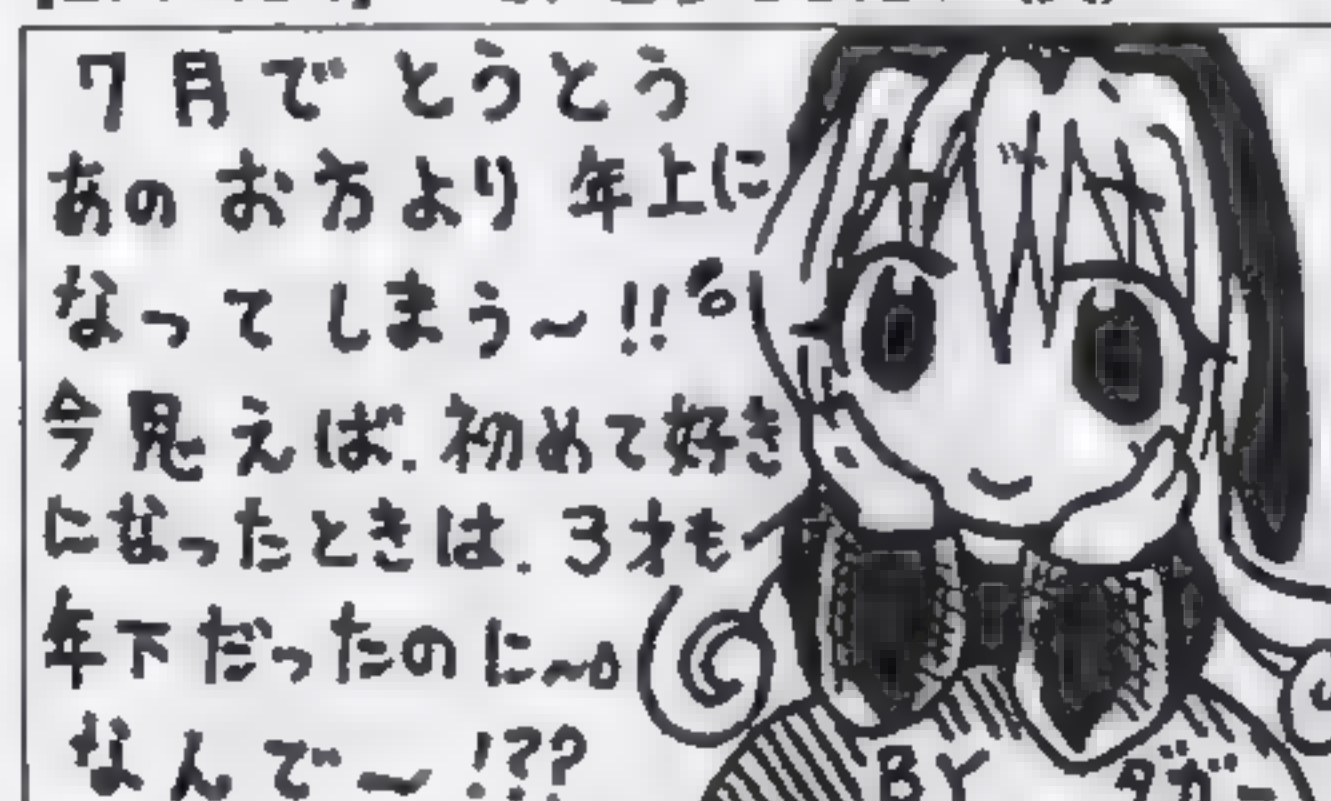 7月でとうとう
あのお方より年上に
なってしまう〜!!
今思えば.初めて好き
になったときは.3才も
年下だったのに〜。
なんで〜!??
BY ダガー